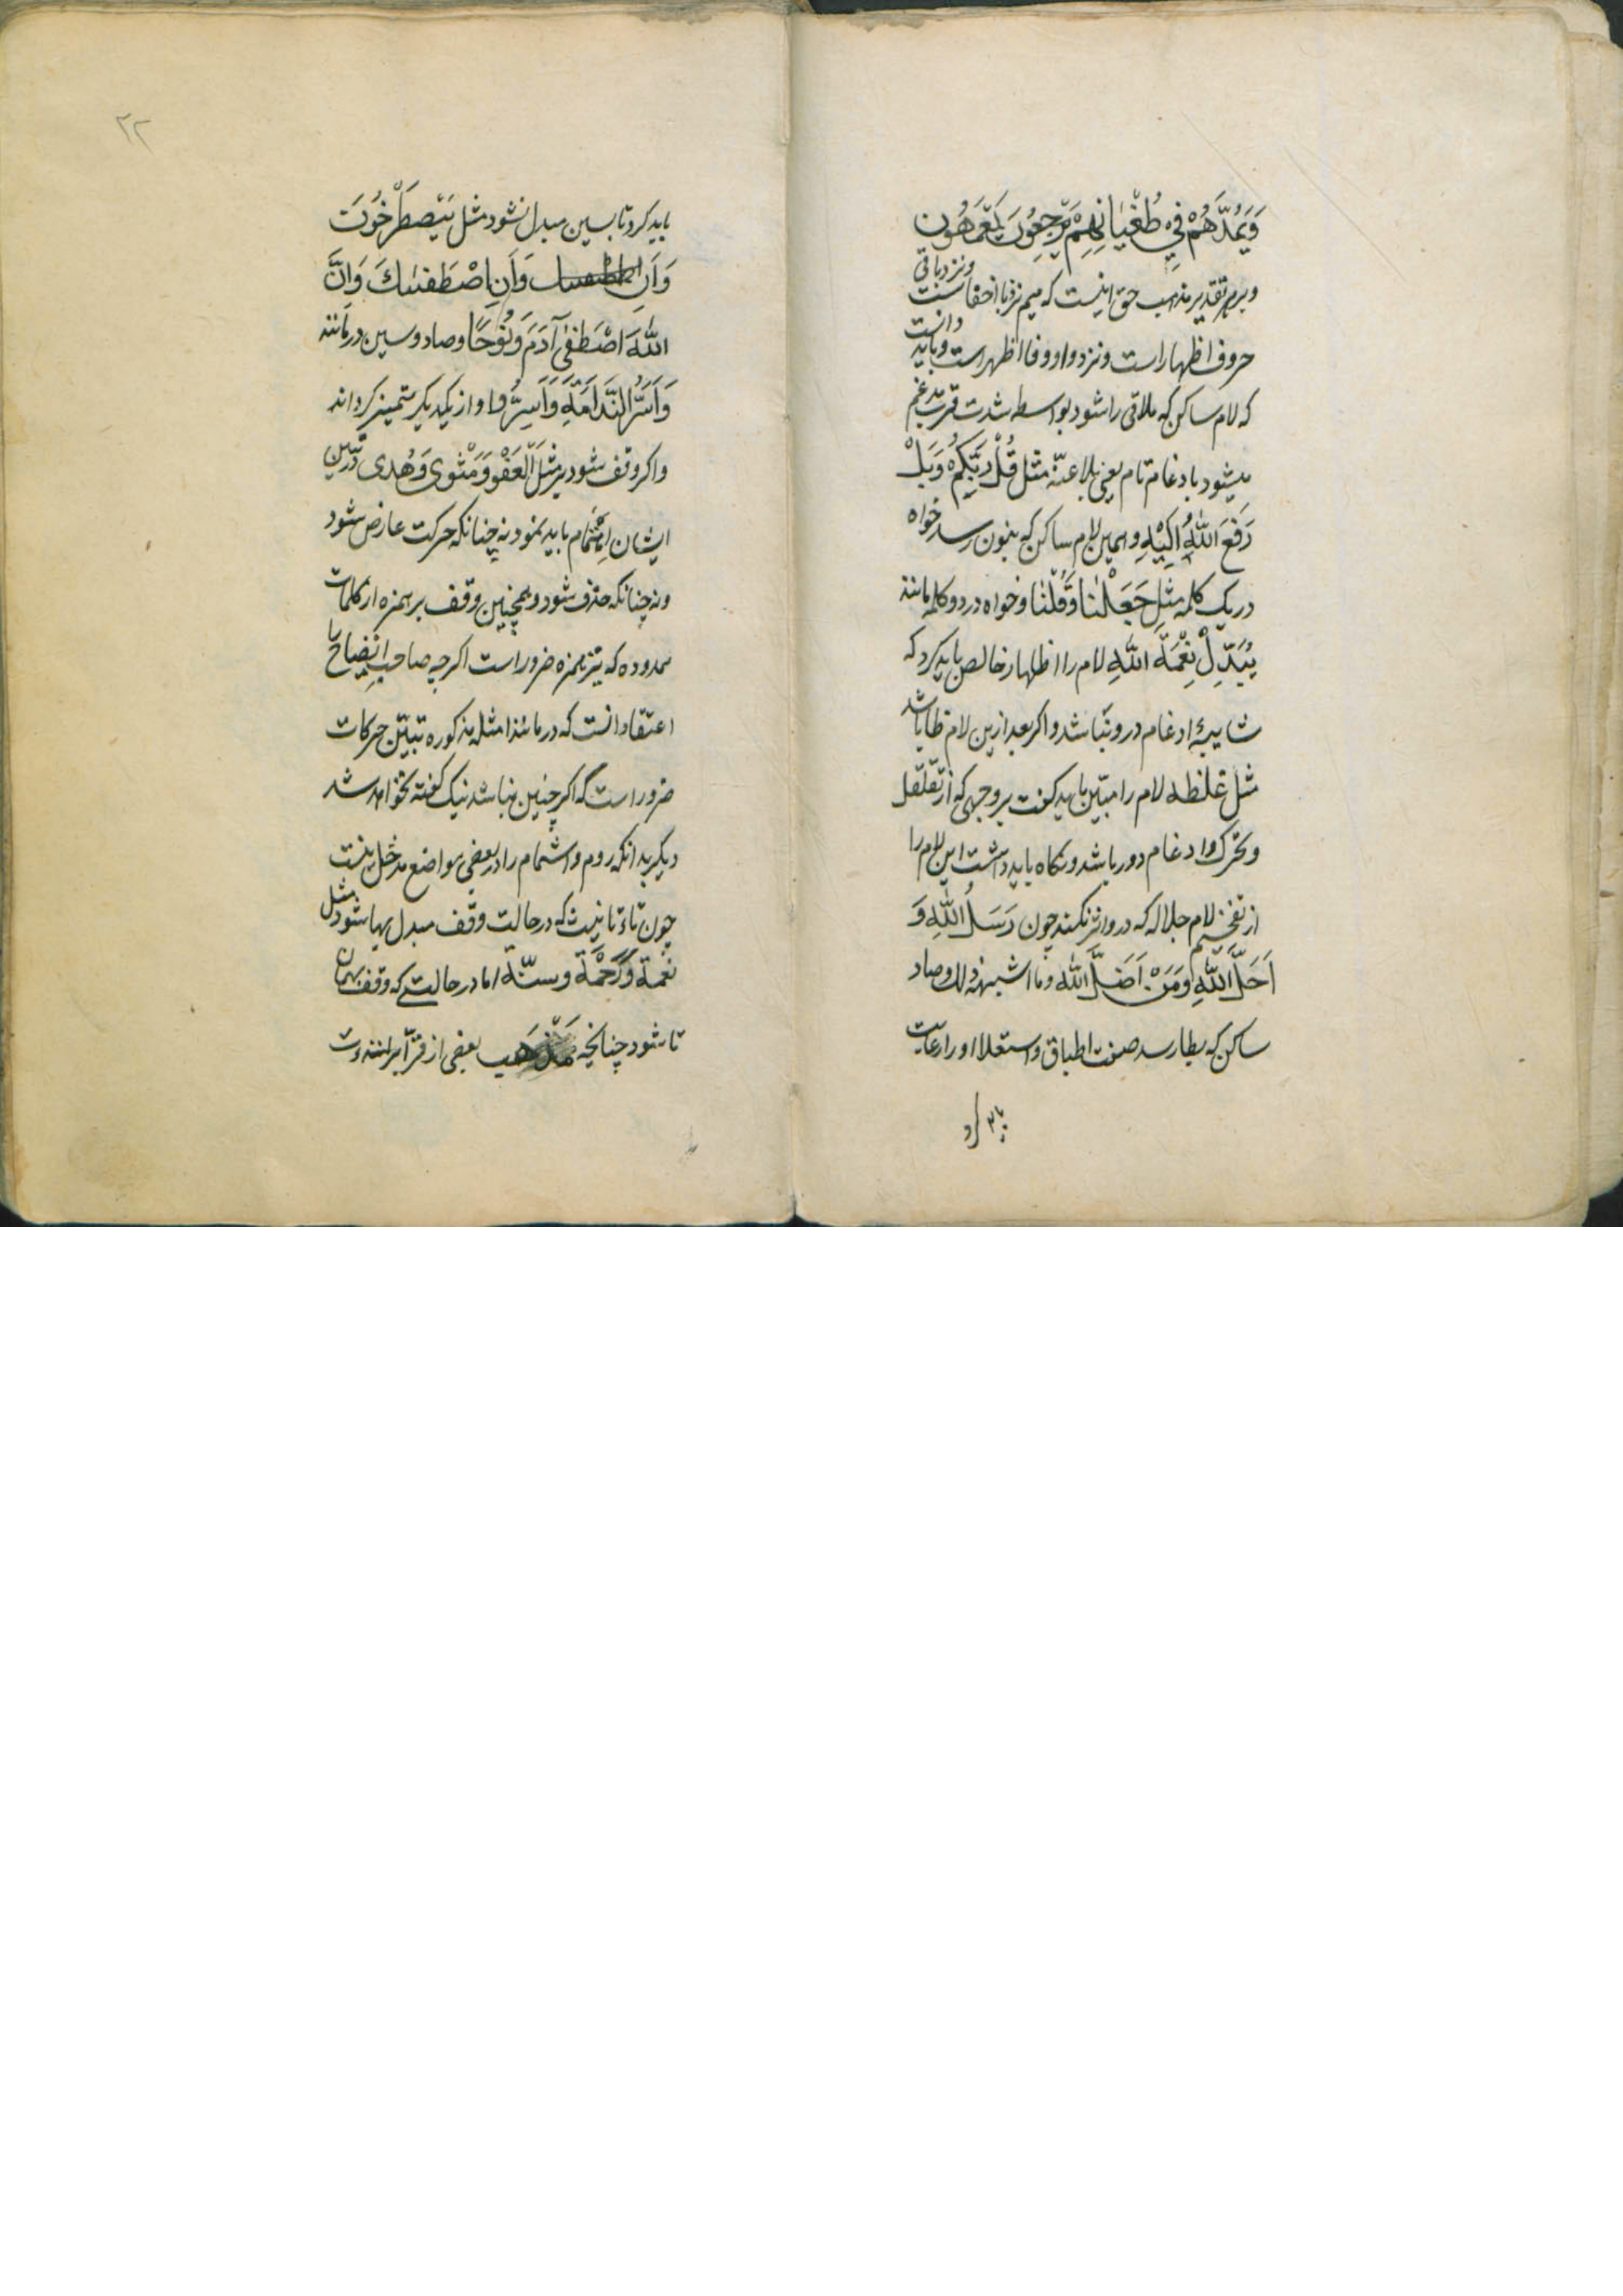 وَیَمُدُّهُمْ فِي طُغْیَانِهِمْ یَعْمَهُون
و بر هر تقدیر مذهب حق اینست که میم نزد با اخفاست و نزد باقی
حروف اظهار است و نزد واو و فا اظهر است و باید دانست
که لام ساکن که ملاقی را شود بواسطه شدت قرب مدغم
میشود بادغام تام یعنی بلا غنّه مثل قُلْ رَبُّکُمْ وَبَلْ
رَفَعَ اللهُ اِلَیْهِ و همین لام ساکن که بنون رسد خواه
در یک کلمه مثل جَعَلْنَا وَقُلْنَا و خواه در دو کلمه مانند
یُبَدِّلْ نِعْمَةَ اللهِ لام را اظهار خالص باید کرد که
شایبهٔ ادغام درو نباشد و اکر بعد ازین لام ظا باشد
مثل غلظه لام را مبیّن باید کفت بر وجهی که از تقلقل
و تحرک و ادغام دور باشد و نکاه باید داشت این لام را
از تفخیم لام جلاله که درو اثر نکند چون رَسَلُ اللهِ وَ
اَحَلَّ اللهِ وَمَنْ اَضَلَّ الله و ما اشبه ذلک و صاد
ساکن که بطا رسد صفت اطباق و استعلا او را رعایت
باید کرد تا بسین مبدل نشود مثل یَصْطَرِخُونَ
وَاَنِ وَاَنِ اصْطَفَیٰكَ وَاِنَّ
اللهَ اصْطَفٰی آدَمَ وَنُوحًا و صاد و سین در مانند
وَاَسَرُّ النَّدَامَةَ وَاَسِرُّوا و از یکدیکر متمیز کرداند
و اکر وقف شود بر مثل الْعَفْوَ وَمَثْوی وَهُدی درین
ایشان اِشْمَام باید نمود نه چنانکه حرکت عارض شود
و نه چنانکه حذف شود و همچنین وقف بر همزه از کلمات
ممدوده که نبر همزه ضرور است اکرچه صاحب ایضاح را
اعتقاد انست که در مانند امثله مذکوره تبیین حرکات
ضرور است که اکر چنین نباشد نیک کفته نخواهد شد
دیکر بدانکه روم و اشمام را در بعضی مواضع مدخل نیست
چون تاء تانیث که در حالت وقف مبدل بها شود مثل
نعمة وَرَحْمَة و سنّة اما در حالتی که وقف بهمان
تا شود چنانچه مَذهَب بعضی از قرّا